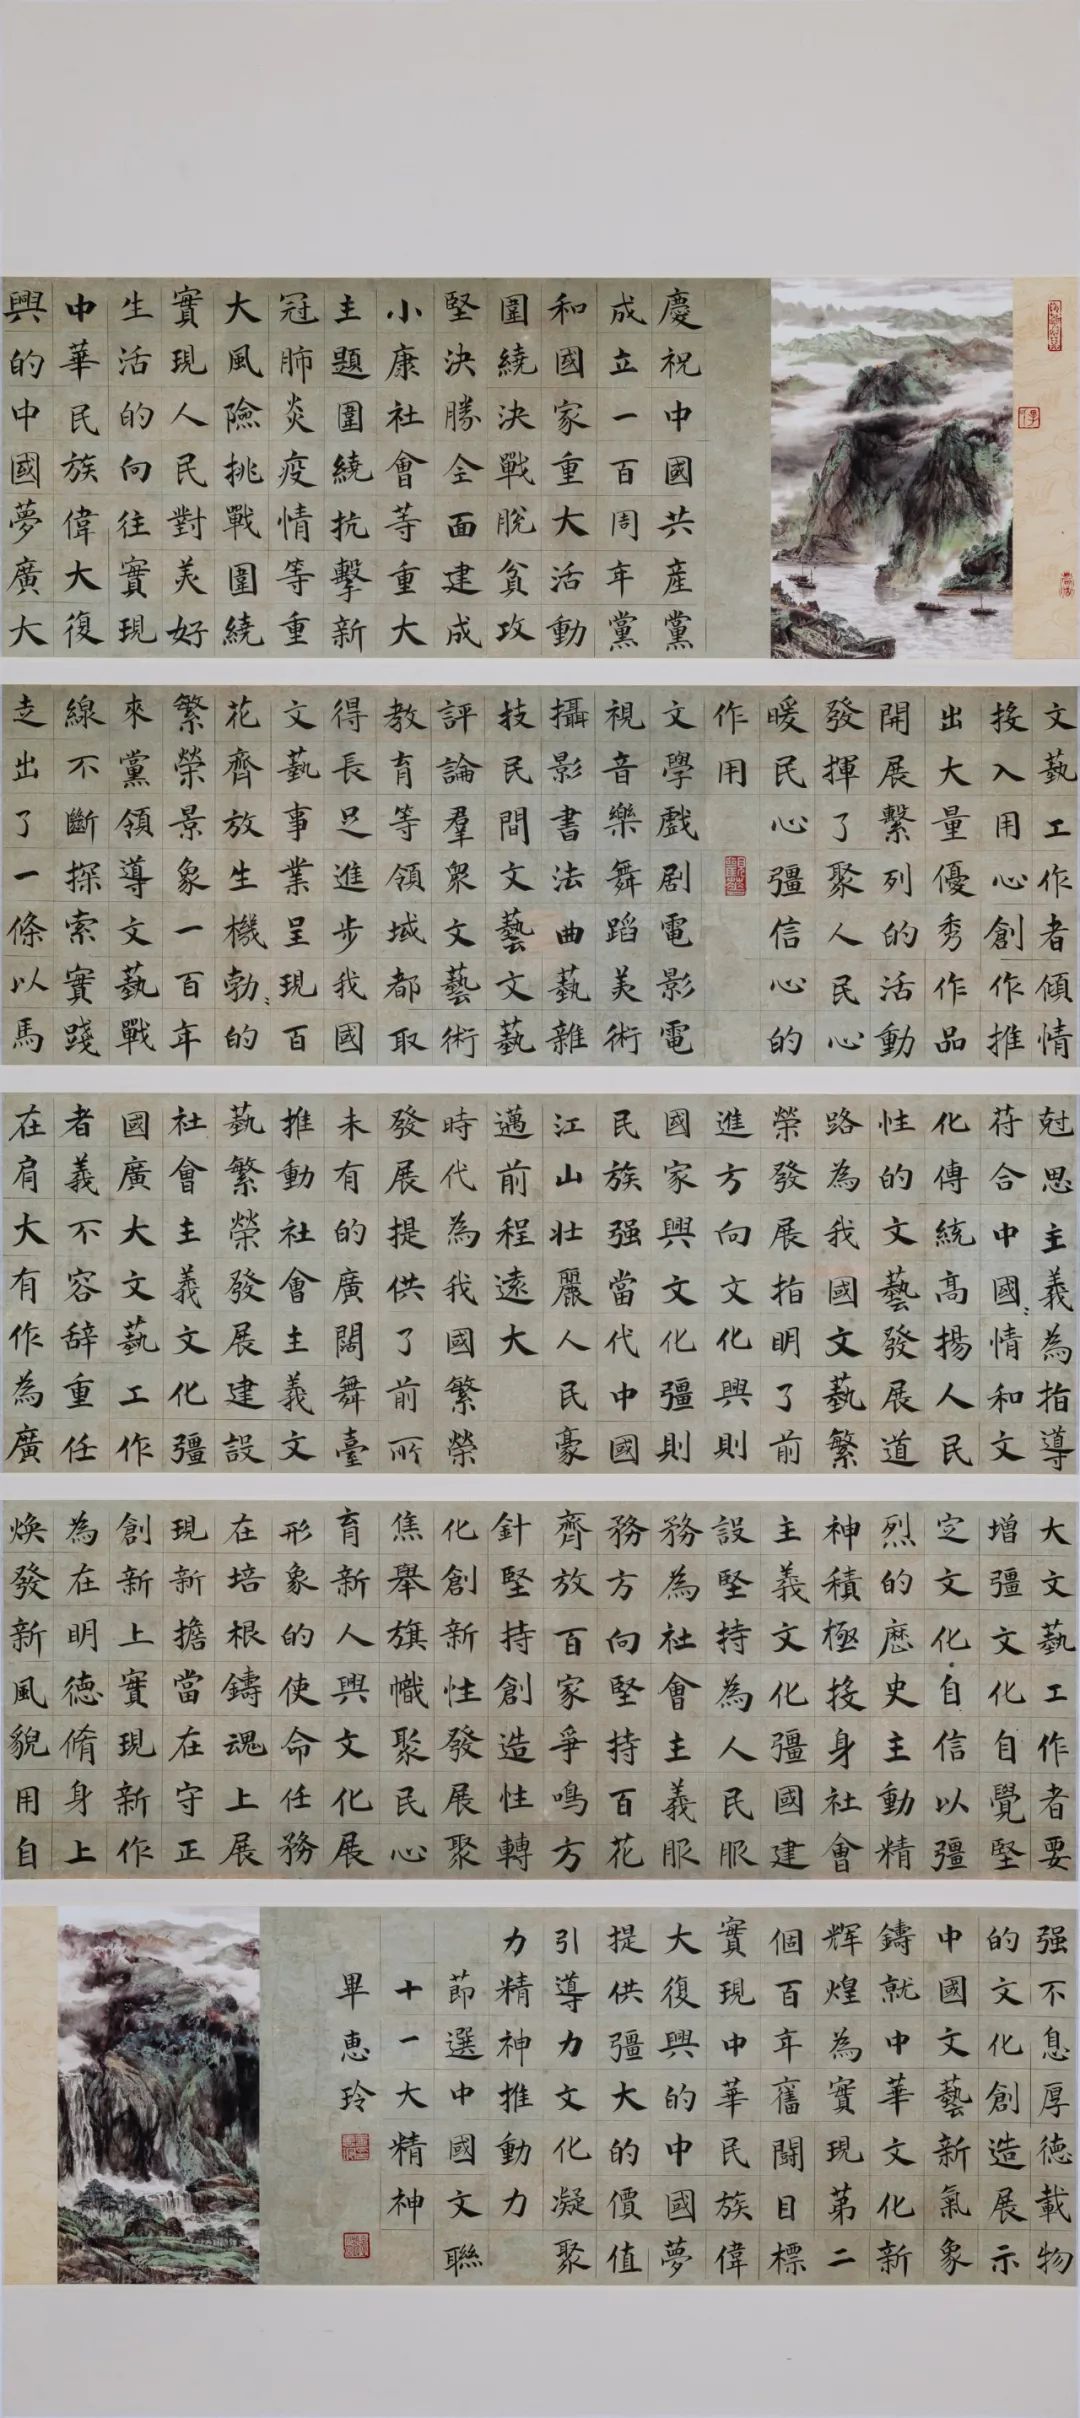 慶祝中國共産黨
成立一百周年黨
和國家重大活動
圍繞決戰脫貧攻
堅決勝全面建成
小康社會等重大
主題圍繞抗擊新
冠肺炎疫情等重
大風險挑戰圍繞
實現人民對美好
生活的向往實現
中華民族偉大復
興的中國夢廣大
文藝工作者傾情
投入用心創作推
出大量優秀作品
開展繫列的活動
發揮了聚人民心
暖民心彊信心的
作用
文學戲剧電影電
視音樂舞蹈美術
攝影書法曲藝雜
技民間文藝文藝
評論羣衆文藝術
教育等領域都取
得長足進步我國
文藝事業呈現百
花齊放生機勃〻的
繁榮景象一百年
來黨領導文藝戰
線不斷探索實踐
走出了一條以馬
尅思主義為指導
符合中國〻情和文
化傳統高揚人民
性的文藝發展道
路為我國文藝繁
榮發展指明了前
進方向文化興則
國家興文化彊則
民族强當代中國
江山壯麗人民豪
邁前程遠大
時代為我國繁榮
發展提供了前所
未有的廣闊舞臺
推動社會主義文
藝繁榮發展建設
社會主義文化彊
國廣大文藝工作
者義不容辞重任
在肩大有作為廣
大文藝工作者要
增彊文化自覺堅
定文化自信以彊
烈的歷史主動精
神積極投身社會
主義文化彊國建
設堅持為人民服
務為社會主義服
務方向堅持百花
齊放百家爭鳴方
針堅持創造性轉
化創新性發展聚
焦舉旗幟聚民心
育新人興文化展
形象的使命任務
在培根鑄魂上展
現新擔當在守正
創新上實現新作
為在明德脩身上
煥發新風貌用自
强不息厚德載物
的文化創造展示
中國文藝新氣象
鑄就中華文化新
輝煌為實現第二
個百年奮闘目標
實現中華民族偉
大復興的中國夢
提供彊大的價值
引導力文化凝聚
力精神推動力
節選中國文聯
十一大精神
畢惠玲